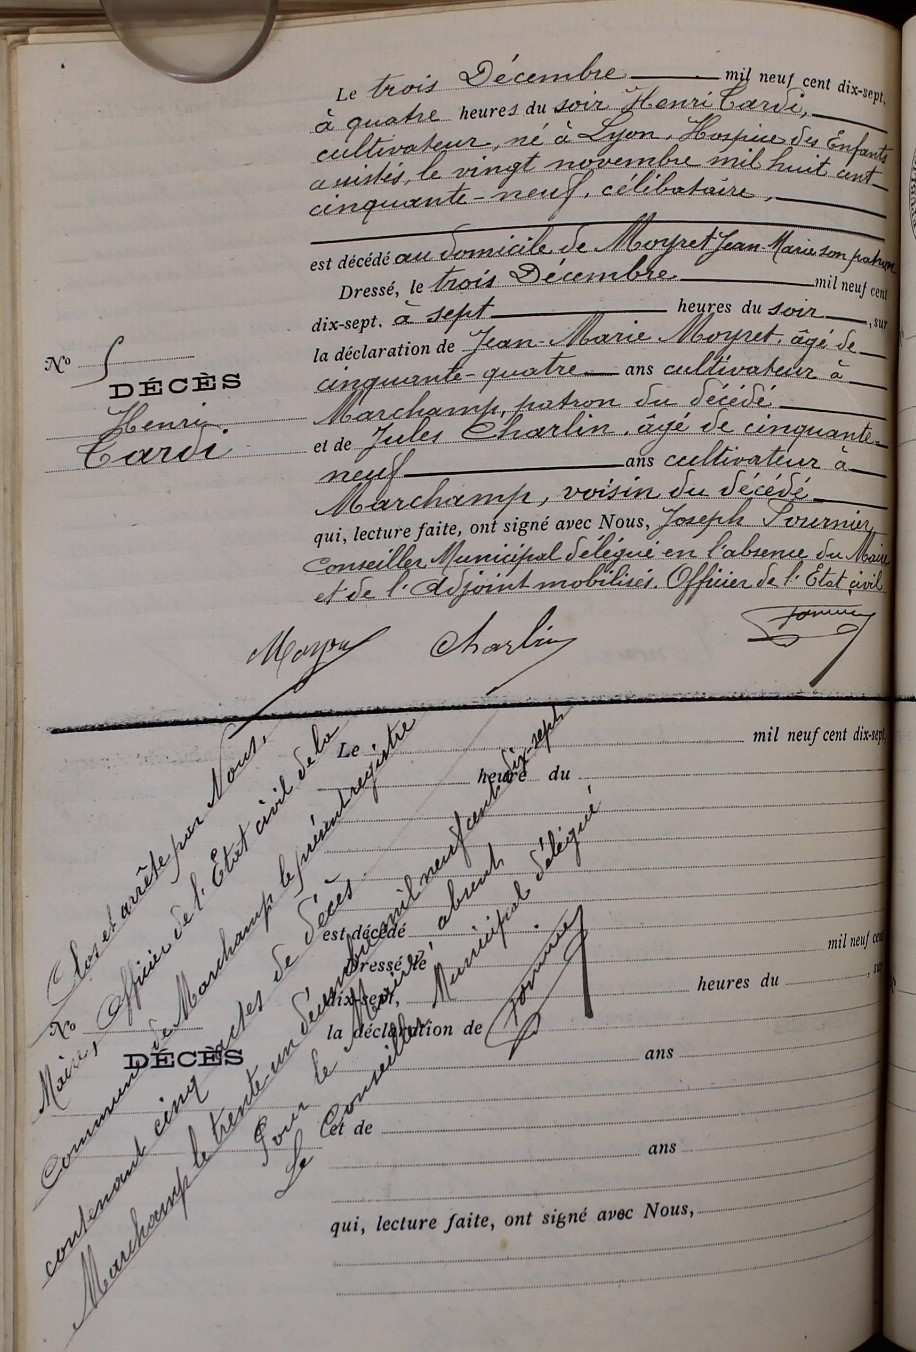 Le trois Décembre mil neuf cent dix-sept,
à quatre heures du soir Henri Cardi,
cultivateur, né à Lyon, Hospice des Enfants
assistés, le vingt novembre mil huit cent
cinquante-neuf, célibataire,
est décédé au domicile de Moyret Jean-Marie son patron
Dressé, le trois Décembre mil neuf cent
dix-sept, à sept heures du soir, sur
la déclaration de Jean-Marie Moyret, âgé de
cinquante-quatre ans cultivateur à
Marchamp, patron du décédé
et de Jules Charlin, âgé de cinquante-
neuf ans cultivateur à
Marchamp, voisin du décédé
qui, lecture faite, ont signé avec Nous, Joseph Fournier,
Conseiller Municipal délégué en l'absence du Maire
et de l'Adjoint mobilisés. Officier de l'Etat civil
No 5
DÉCÈS
Henri
Cardi
Charlin
Le mil neuf cent dix-sept,
heure du
est décédé
Dressé, le mil neuf cent
dix-sept, heures du , sur
la déclaration de
ans
et de
ans
qui, lecture faite, ont signé avec Nous,
No
DÉCÈS
Clos et arrêté par Nous,
Maire, Officier de l'Etat civil de la
Commune de Marchamp le présent registre
contenant cinq actes de décès
Marchamp le trente un décembre mil neuf cent dix-sept
Pour le Maire absent
Le Conseiller Municipal délégué